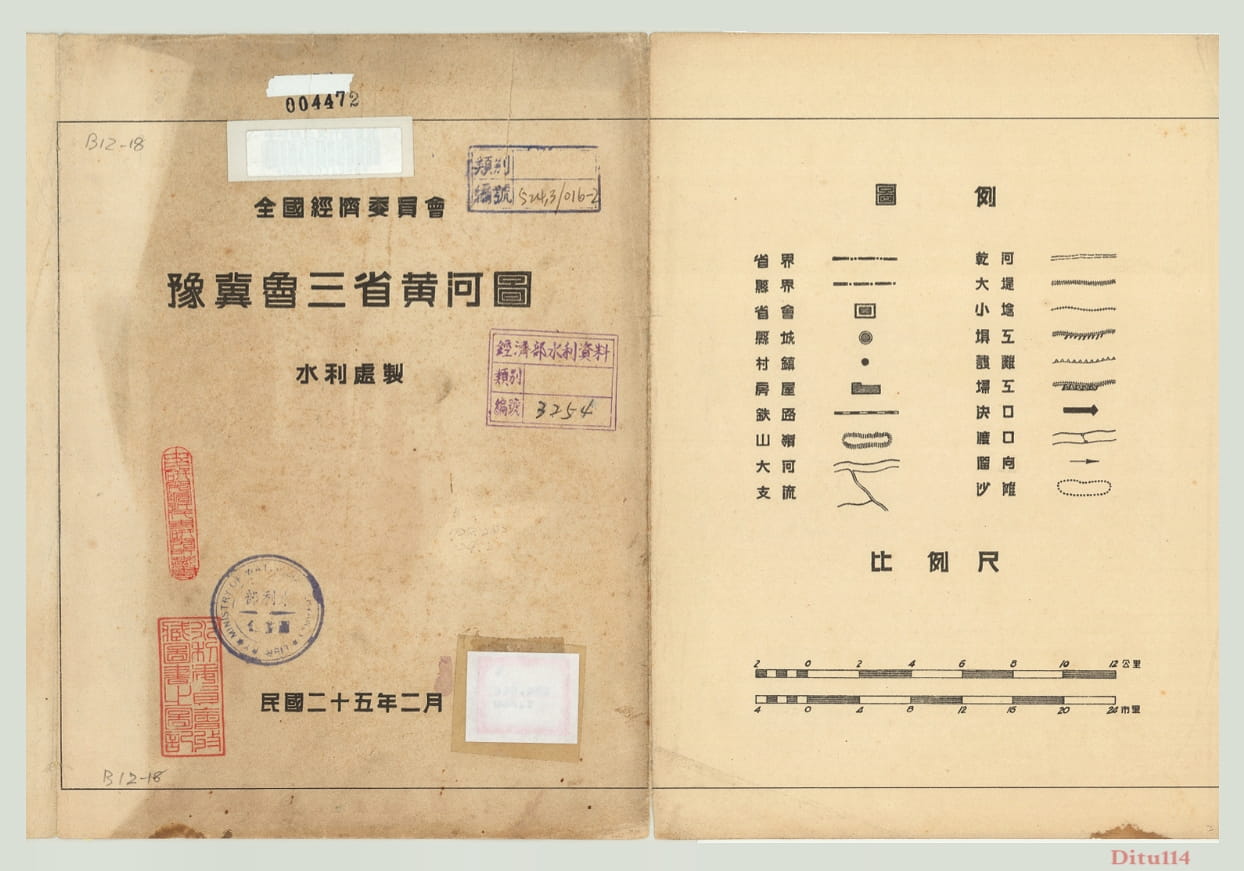 004472
B12-18
類別
編號 524.3/016-2
全國經濟委員會
豫冀魯三省黄河圖
水利處製
經濟部水利資料
類別
編號 3254
水利部
民國二十五年二月
B12-18
圖例
省界
縣界
省會
縣城
村鎮
房屋
鉄路
山嶺
大河
支流
乾河
大堤
小埝
埧工
護灘
埽工
決口
渡口
溜向
沙灘
比例尺
2 0 2 4 6 8 10 12 公里
4 0 4 8 12 16 20 24 市里
Ditu114